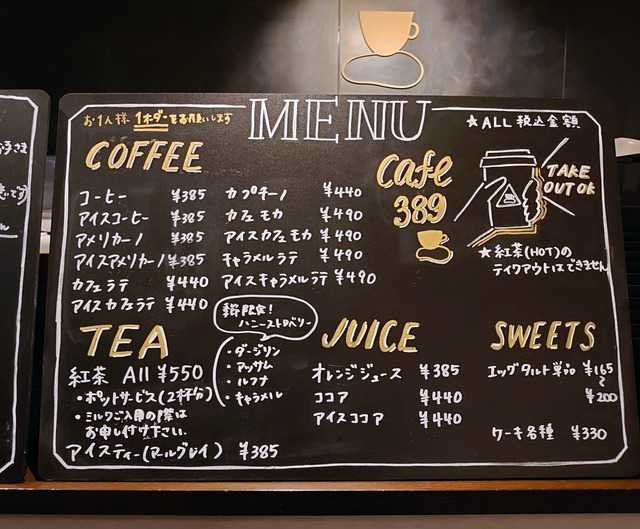 お1人様 1オーダーをお願いします
MENU
★ALL 税込金額
COFFEE
コーヒー ¥385
アイスコーヒー ¥385
アメリカーノ ¥385
アイスアメリカーノ ¥385
カフェラテ ¥440
アイスカフェラテ ¥440
カプチーノ ¥440
カフェモカ ¥490
アイスカフェモカ ¥490
キャラメルラテ ¥490
アイスキャラメルラテ ¥490
Cafe
389
TAKE
OUT OK
★紅茶(HOT)の
テイクアウトはできません
TEA
紅茶 All ¥550
・ポットサービス(2杯分)
・ミルクご入用の際は
お申し付け下さい。
アイスティー(アールグレイ) ¥385
限定!
ハニーストロベリー
・ダージリン
・アッサム
・ルフナ
・キャラメル
JUICE
オレンジジュース ¥385
ココア ¥440
アイスココア ¥440
SWEETS
エッグタルト単品 ¥165
~
¥200
ケーキ各種 ¥330